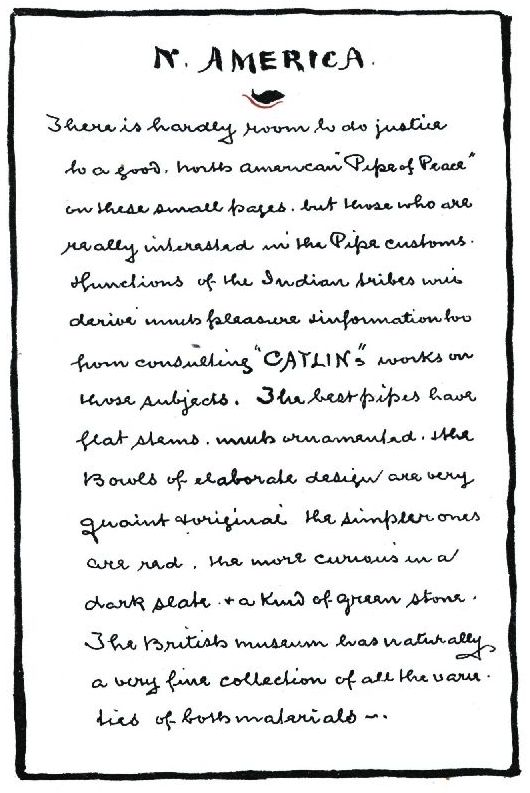 N. AMERICA.
There is hardly room to do justice
to a good. North American "Pipe of Peace"
on these small pages. but those who are
really interested in the Pipe customs.
& functions of the Indian tribes will
derive much pleasure & information too
from consulting "CATLIN's" works on
those subjects. The best pipes have
flat stems. much ornamented. & the
Bowls of elaborate design are very
quaint & original the simpler ones
are red. the more curious in a
dark slate. & a Kind of green stone.
The British museum has naturally
a very fine collection of all the varie-
ties of both materials ~.